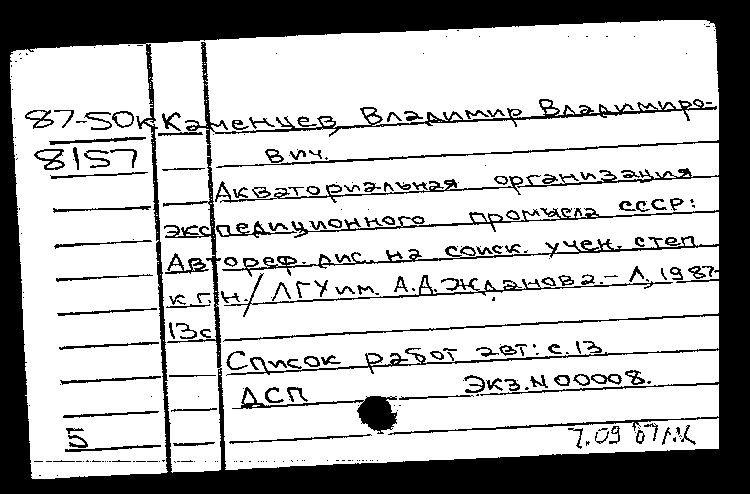 87-50к Каменцев, Владимир Владимиро-
8157 вич.
Акваториальная организация
экспедиционного промысла СССР:
Автореф. дис. на соиск. учен. степ.
к.г.н. / ЛГУ им. А.А. Жданова. - Л, 1987-
13с
Список работ авт: с. 13.
ДСП Экз. N 00008.
5 7.09 87